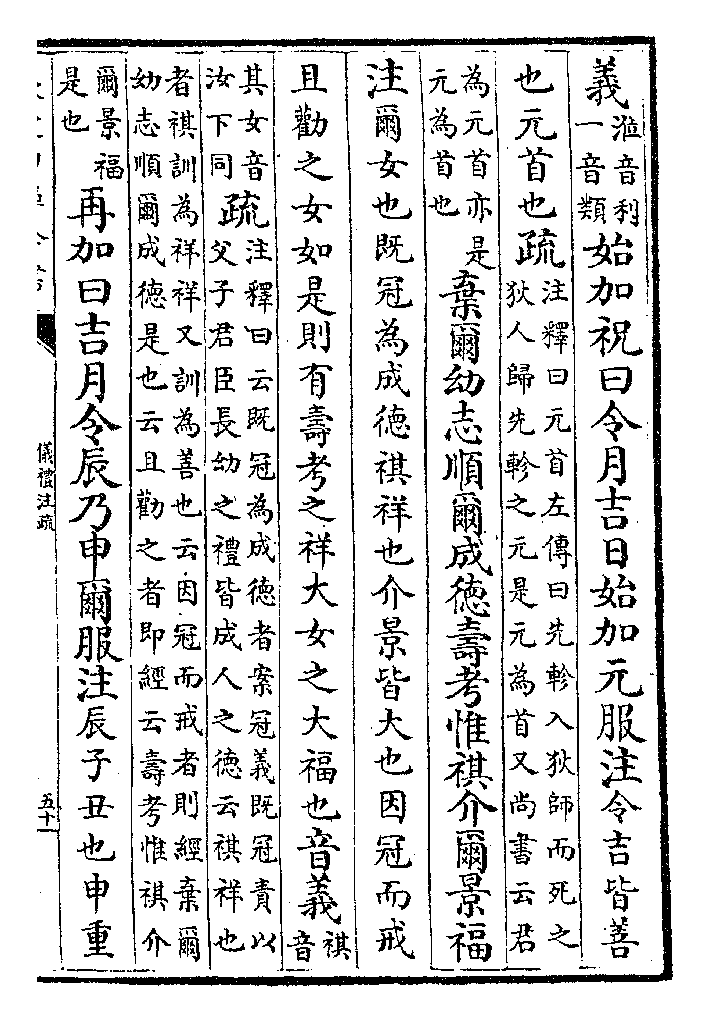 義涖音利
一音類始加祝曰令月吉日始加元服注令吉皆善
也元首也疏注釋曰元首左傳曰先軫入狄師而死之
狄人歸先軫之元是元為首又尚書云君
為元首亦是
元為首也棄爾幼志順爾成德壽考惟祺介爾景福
注爾女也既冠為成德祺祥也介景皆大也因冠而戒
且勸之女如是則有壽考之祥大女之大福也音義祺
音
其女音
汝下同疏注釋曰云既冠為成德者案冠義既冠責以
父子君臣長幼之禮皆成人之德云祺祥也
者祺訓為祥祥又訓為善也云因冠而戒者則經棄爾
幼志順爾成德是也云且勸之者即經云壽考惟祺介
爾景福
是也再加曰吉月令辰乃申爾服注辰子丑也申重
儀禮注疏
五十一